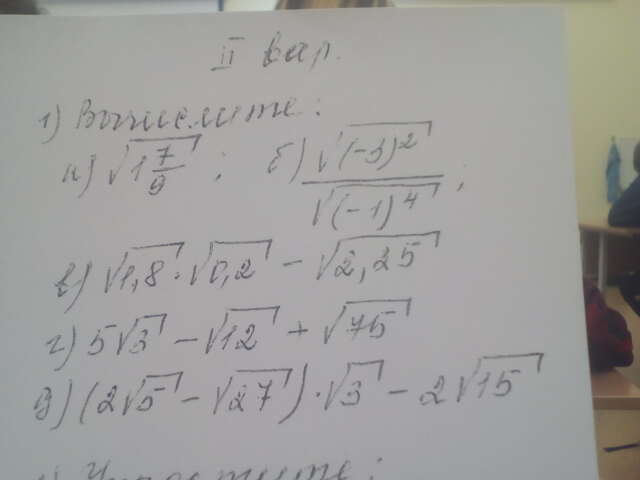 II вар.
1) Вычислите:
а) √(1 7/9); б) √((-3)²)/√((-1)⁴);
в) √1,8 · √0,2 − √2,25
г) 5√3 − √12 + √75
д) (2√5 − √27) · √3 − 2√15